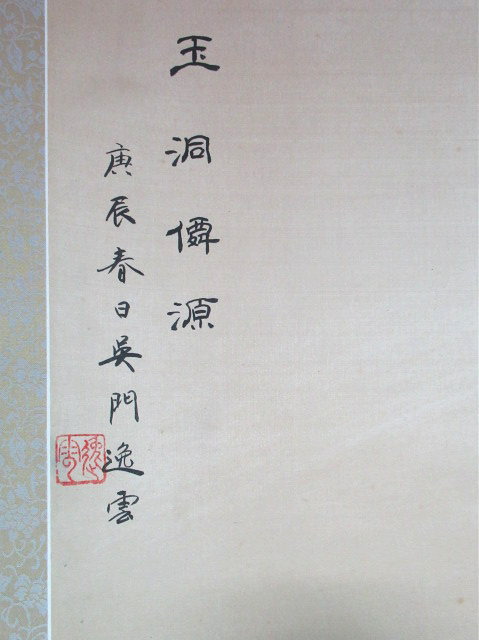 玉洞僊源
庚辰春日吳門逸雲
逸雲